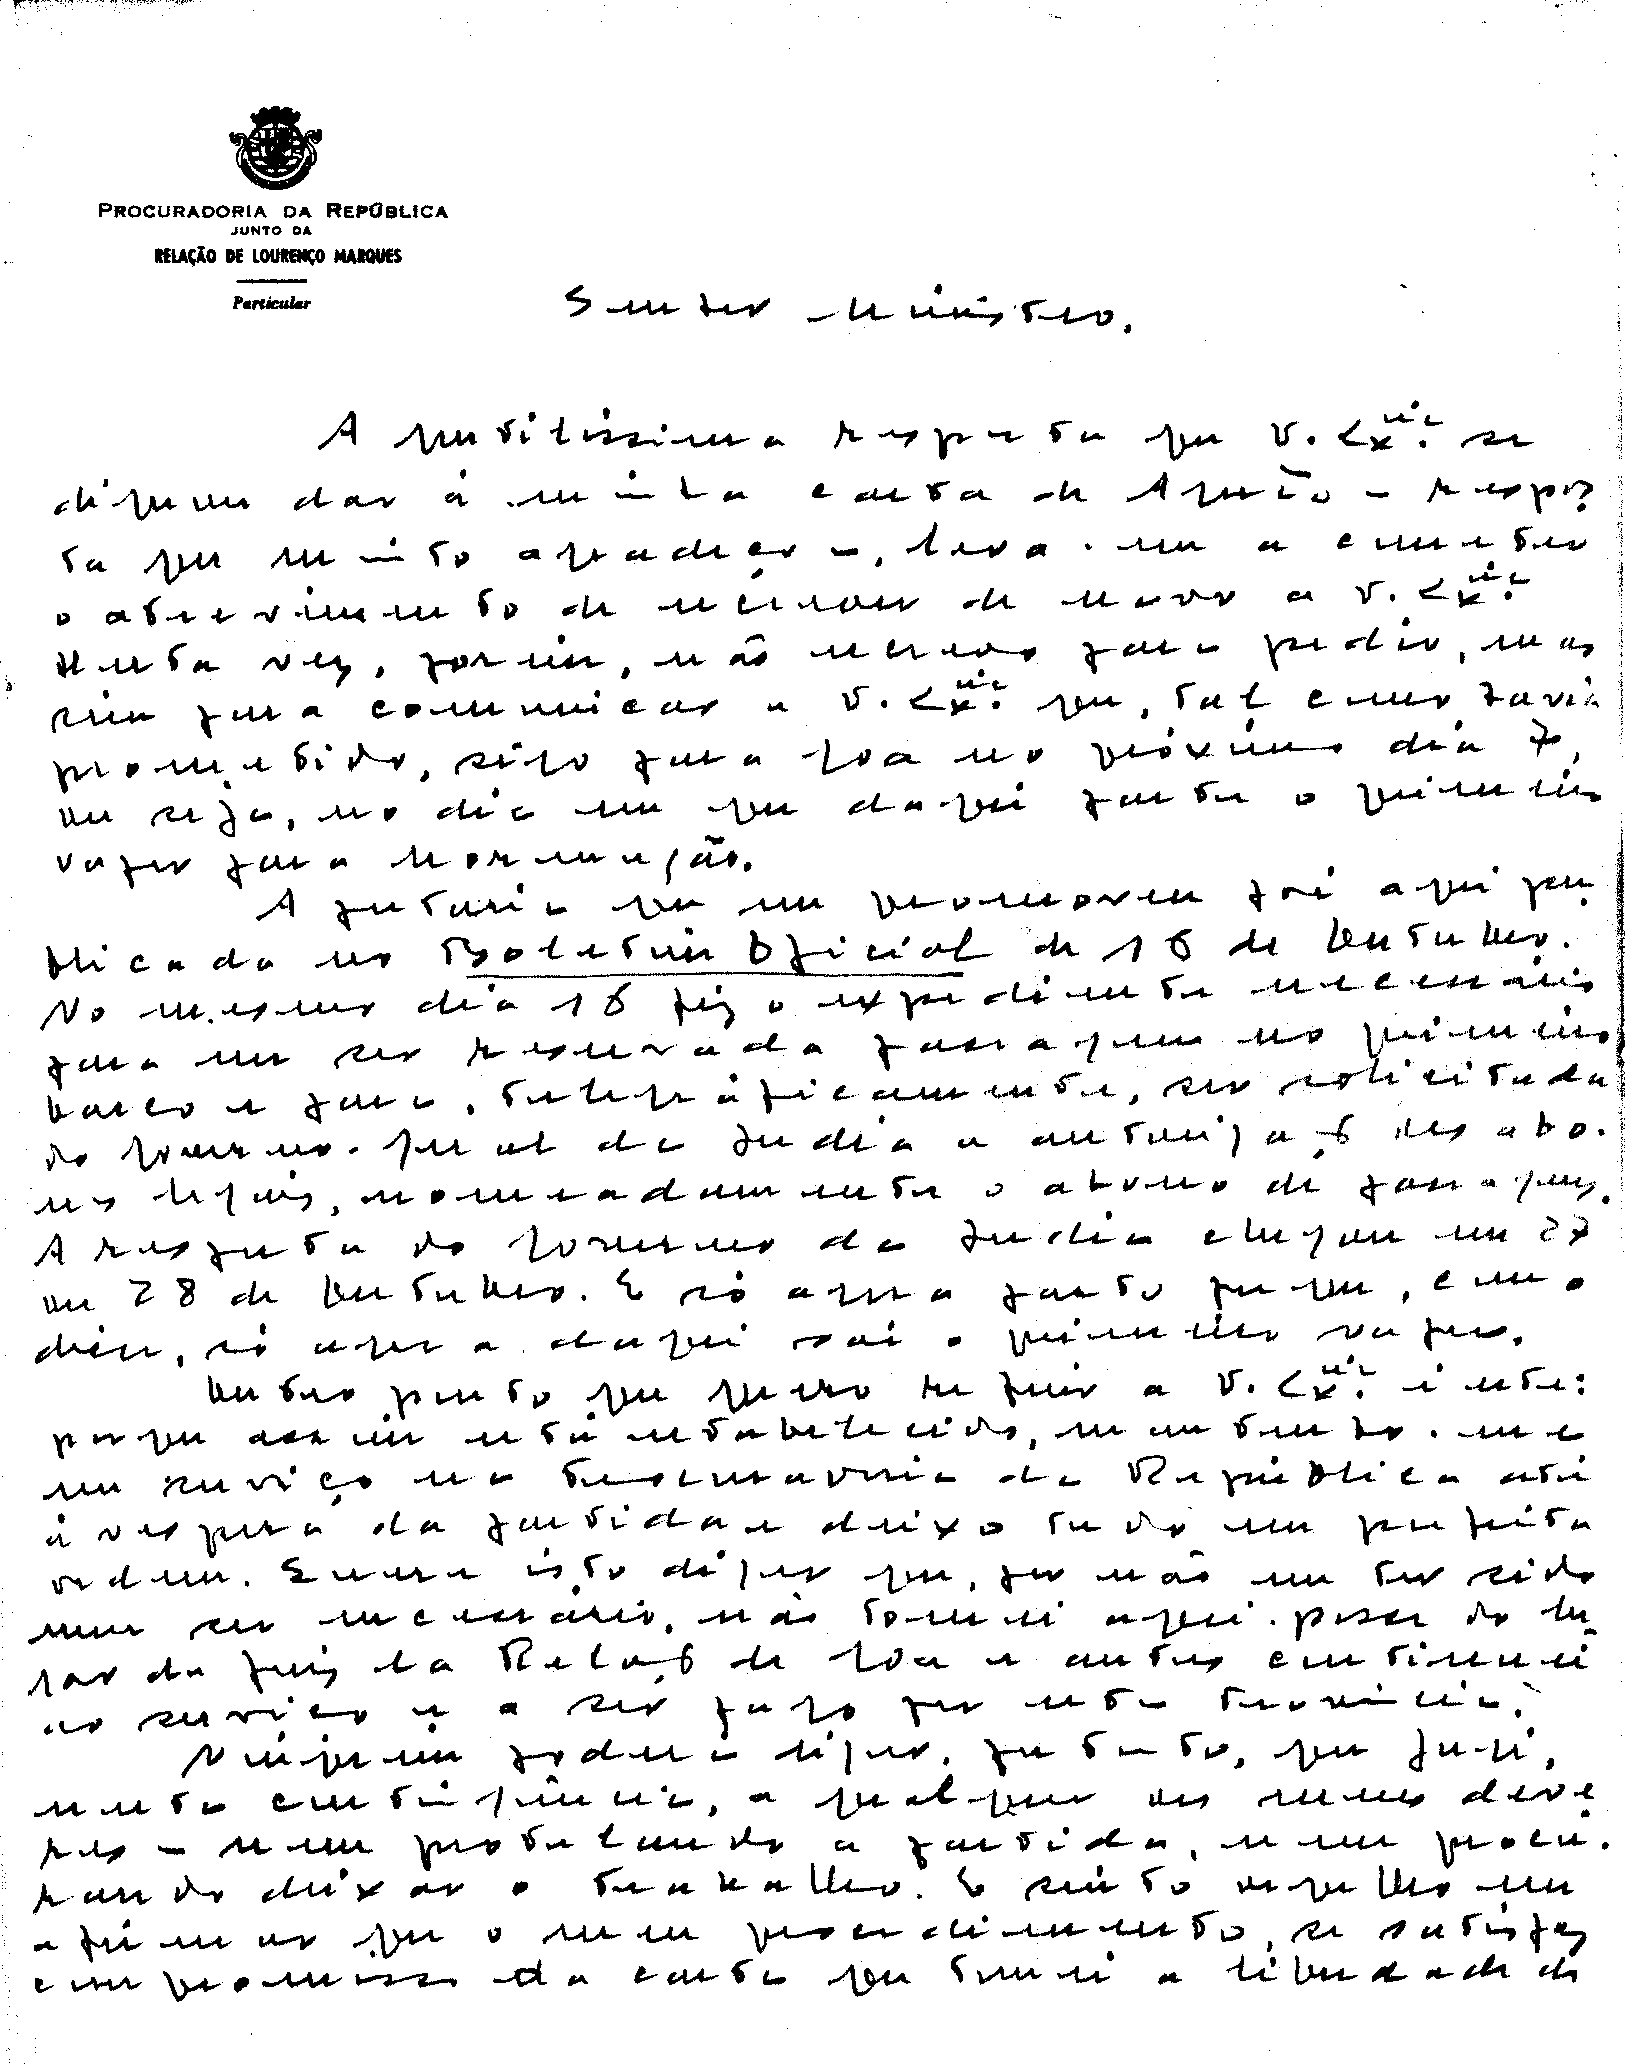 PROCURADORIA DA REPÚBLICA
JUNTO DA
RELAÇÃO DE LOURENÇO MARQUES
Particular
Senhor Ministro,
A gentilíssima resposta que V. Exª. se
dignou dar à minha carta de Agosto – respos
ta que muito agradeço –, leva-me a cometer
o atrevimento de escrever de novo a V. Exª.
Desta vez, porém, não escrevo para pedir, mas
sim para comunicar a V. Exª. que, tal como havia
prometido, sigo para Goa no próximo dia 7,
ou seja, no dia em que daqui parte o primeiro
vapor para Mormugão.
A portaria que me promoveu foi aqui pu
blicada no Boletim Oficial de 16 de Outubro.
No mesmo dia 16 fiz o expediente necessário
para me ser reservada passagem no primeiro
barco e para, telegràficamente, ser solicitada
do Governo-Geral da Índia a autorização dos abo-
nos legais, nomeadamente o abono de passagens.
A resposta do Governo da Índia chegou em 27
ou 28 de Outubro. E só agora parto porque, como
disse, só agora daqui sai o primeiro vapor.
Outro ponto que quero referir a V. Exª. é este:
porque assim está estabelecido, mantenho-me
em serviço na Procuradoria da República até
à véspera da partida e deixo tudo em perfeita
ordem. Quere isto dizer que, por não me ter sido
nem ser necessário, não tomei aqui posse do lu
gar de Juiz da Relação de Goa e antes continuei
ao serviço e a ser pago por esta Província.
Ninguém poderá dizer, portanto, que fugi,
nesta contingência, a qualquer dos meus deve
res – nem protelando a partida, nem procu-
rando deixar o trabalho. E sinto orgulho em
afirmar que o meu procedimento, se satisfez
compromisso da carta que tomei a liberdade de